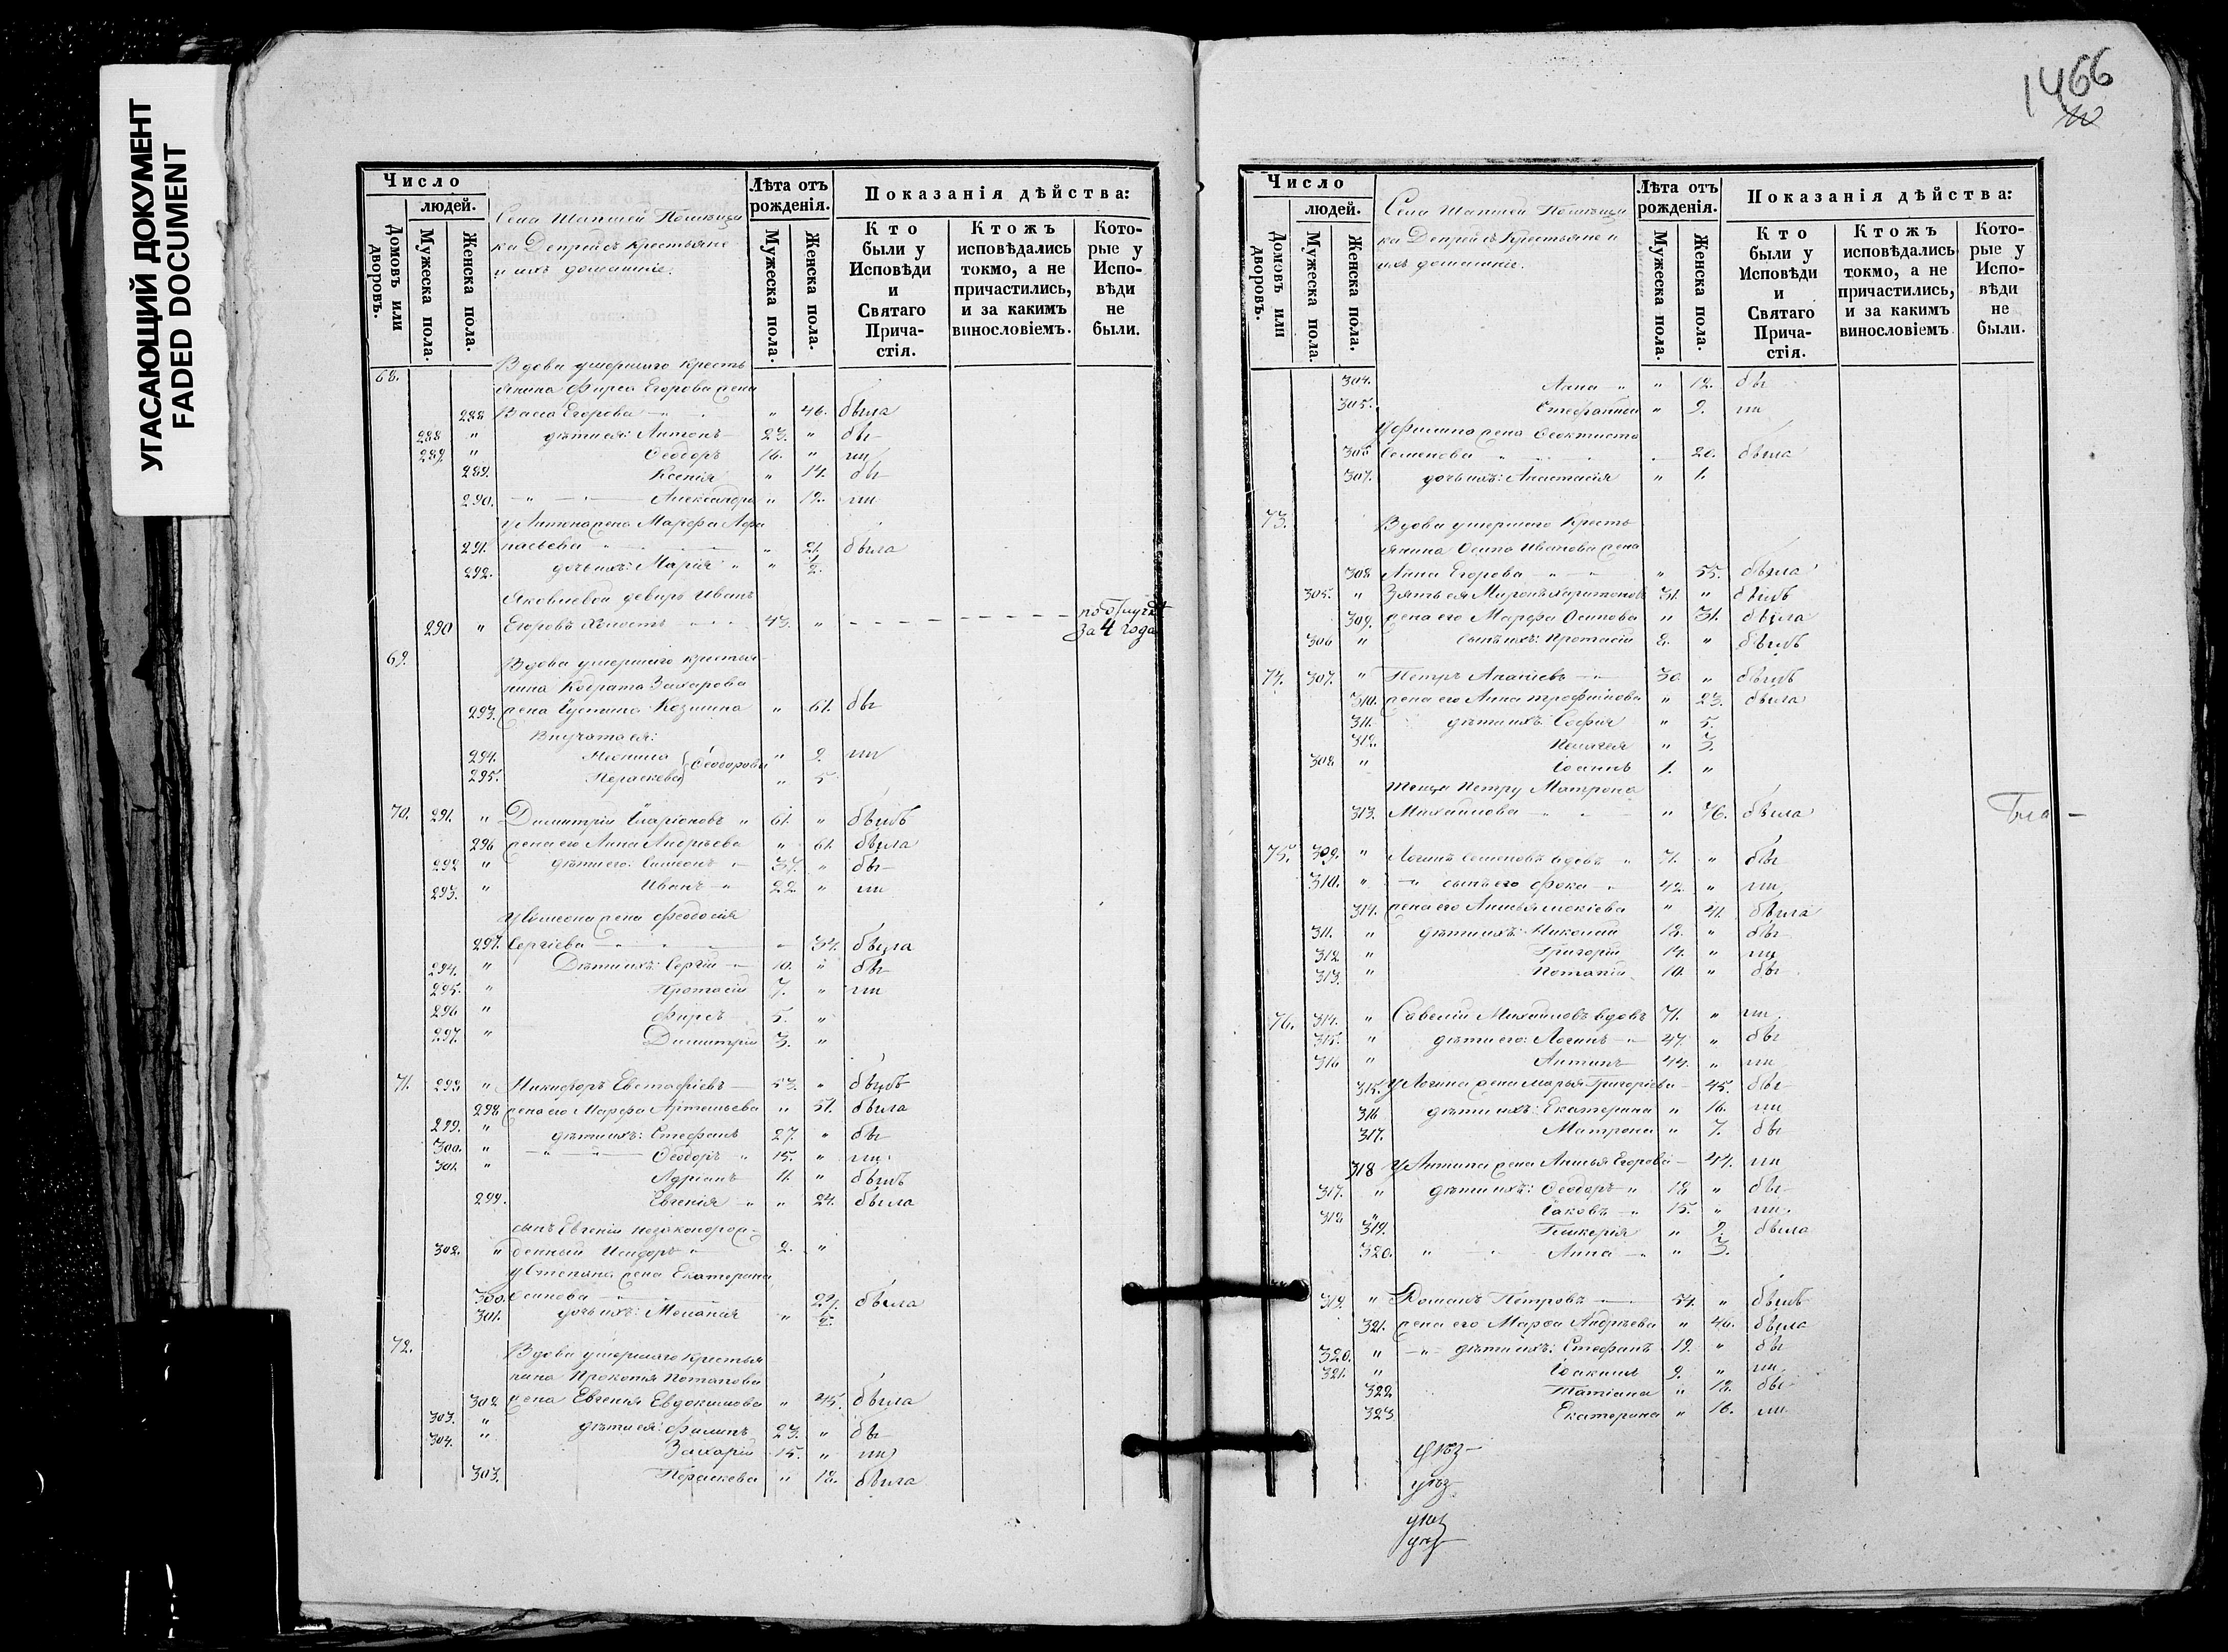 УГАСАЮЩИЙ ДОКУМЕНТ
FADED DOCUMENT
Число
людей.
Домовъ или дворовъ.
Мужеска пола.
Женска пола.
Села Шапшей Помѣщи
ка Депрейсъ крестьяне
и ихъ домашніе:
Лѣта отъ рожденія.
Мужеска пола.
Женска пола.
Показанія дѣйства:
Кто были у Исповѣди и Святаго Причастія.
Ктожъ исповѣдались токмо, а не причастились, и за какимъ винословіемъ.
Которые у Исповѣди не были.
68. Вдова умершаго кресть
янина Фирса Егорова жена
288 Васса Егорова " 46. была
288 " дѣти ея: Антонъ 23. " бы
289 " Ѳеодоръ 16. " ли
289. Ксенія " 14. бы
290. Александра " 12. ли
у Антона жена Марфа Афа
291. насьева " 21. была
292. дочь ихъ: Марія " 1/2.
Яковлевой деверь Иванъ
290 " Егоровъ холостъ 43. " по отлучкѣ
за 4 года
69. Вдова умершаго крестья
нина Кодрата Захарова
293. жена Іустина Козмина " 61. бы
Внучата ея:
294. Ѳеодоровы " 9. ли
295. Параскева " 5.
70. 291. " Димитрій Иларіоновъ " 61. " былъ
296 жена его Анна Андрѣева " 61. была
292 " дѣти его: Симеонъ 37. " бы
293. " Иванъ 22 " ли
у Симеона жена Феодосія
297. Сергіева 34. была
294. " Дѣти ихъ: Сергій 10. " бы
295. " Протасій 7. " ли
296 " Фирсъ 5. "
297. " Димитрій 3. "
71. 298 " Никифоръ Евстафіевъ 53. " былъ
298 жена его Марфа Артемьева " 51. была
299. " дѣти ихъ: Стефанъ 27. " бы
300. " Ѳеодоръ 15. " ли
301. " Адріанъ 11. " былъ
299. Евгенія " 24. была
сынъ Евгеніи незаконорож-
302. " денный Исидоръ 2. "
у Степана жена Екатерина
300. Осипова 27. была
301. дочь ихъ: Меланія " 1/2.
72. Вдова умершаго крестья
нина Прокопія Потапова
302 жена Евгенія Евдокимова " 45. была
303. " дѣти ея: Филипъ 23. " бы
304. " Захарій 15. " ли
303. Параскева " 18. была
1466
Число
людей.
Домовъ или дворовъ.
Мужеска пола.
Женска пола.
Села Шапшей Помѣщи
ка Депрейсъ Крестьяне и
ихъ домашніе.
Лѣта отъ рожденія.
Мужеска пола.
Женска пола.
Показанія дѣйства:
Кто были у Исповѣди и Святаго Причастія.
Ктожъ исповѣдались токмо, а не причастились, и за какимъ винословіемъ
Которые у Исповѣди не были.
304. Анна " " 12. бы
305. Стефанида " 9. ли
У Филипа жена Ѳеоктиста
306 Семенова 20. была
307. дочь ихъ: Анастасія " 1.
73. Вдова умершаго Кресть
янина Осипа Иванова жена
308 Анна Егорова " 55. была
305. " Зять ея Миронъ Харитоновъ 31. " былъ
309. жена его Марфа Осипова " 31. была
306 " сынъ ихъ: Протасій 8. " былъ
74. 307. " Петръ 30 " былъ
310. жена его Анна Трофимова " 23. была
311. дѣти ихъ: Софія " 5.
312. Пелагея " 3.
308. " Іоаннъ 1. "
Теща Петру Матрона
313. Михайлова " 76. была
75. 309. " Логинъ Семеновъ вдовъ " 71. " бы
310. " сынъ его Фока 42. " ли
314. жена его Анисья " 41. была
311. " дѣти ихъ: Николай 18. " бы
312 " Григорій 14. " ли
313. " Потапій 10. " бы
76. 314. " Савелій Михайловъ вдовъ 71. " ли
315. " дѣти его: Логинъ 47. " бы
316 " Антипъ 44. " ли
315. У Логина жена Марья Григорьева 45. бы
316 дѣти ихъ: Екатерина " 16. ли
317. Матрона " 7. бы
318 У Антипа жена Анисья Егорова 44. ли
317. " дѣти ихъ: Ѳеодоръ " 18 " бы
318 " Іаковъ 15. " ли
319. Гликерія " 9. была
320. " Анна " 3.
319. " Романъ Петровъ 51. " былъ
321. жена его Марѳа Андрѣева " 46. была
320. " дѣти ихъ: Стефанъ 19. " бы
321. " Іоакимъ 9. " ли
322 Татіана " 18. бы
323 Екатерина " 16. ли